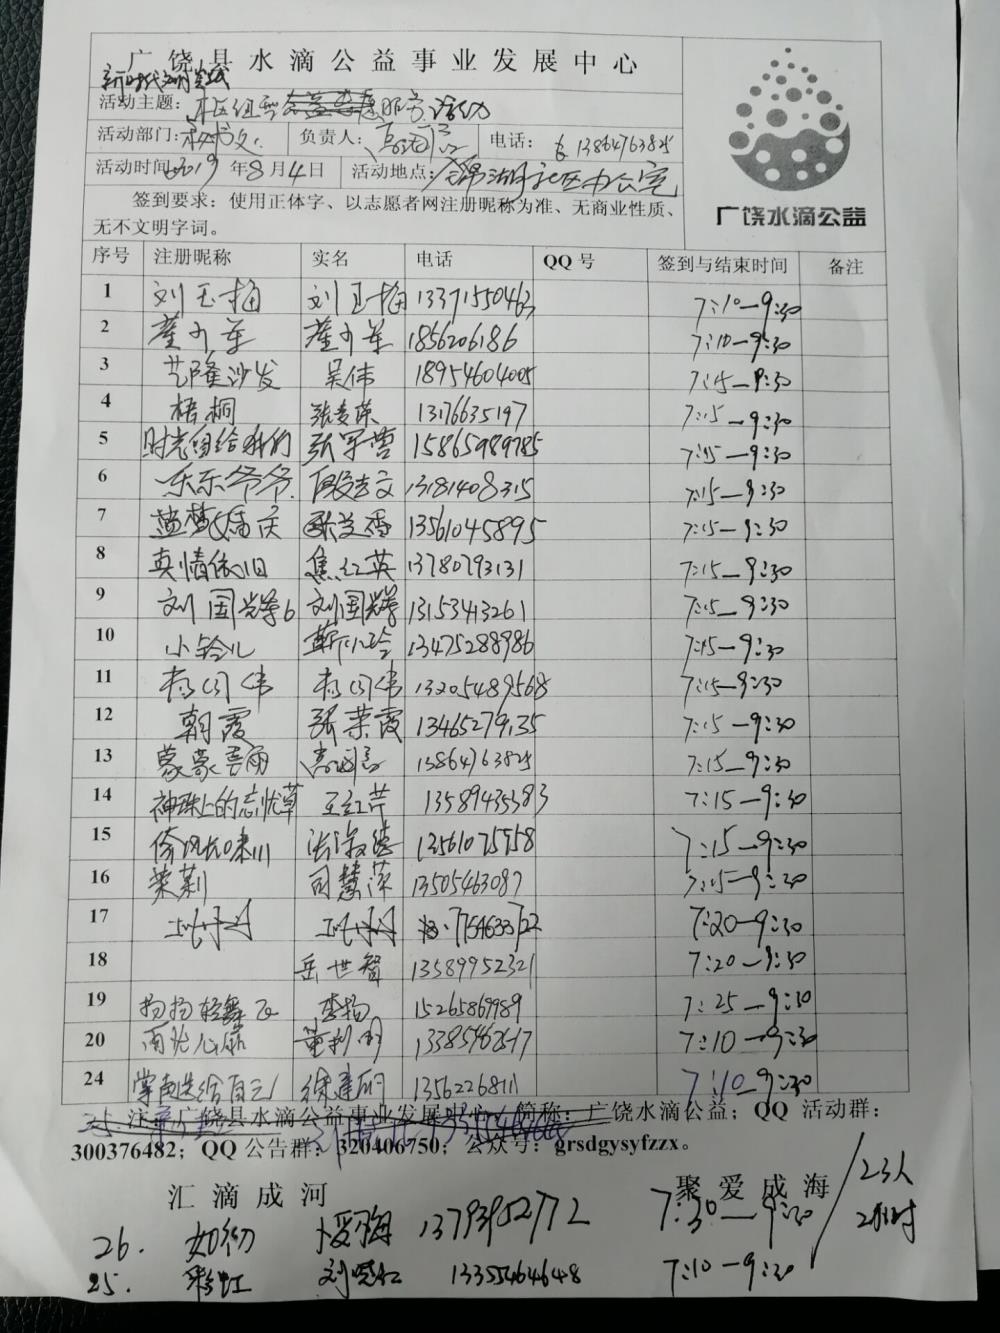 广饶县水滴公益事业发展中心
新时代文明实践
活动主题: 服务活动
活动部门: 负责人: 电话: 13864763825
活动时间 2019 年 8 月 4 日 活动地点: 锦湖社区办公室
签到要求：使用正体字、以志愿者网注册昵称为准、无商业性质、
无不文明字词。
广饶水滴公益
序号 注册昵称 实名 电话 QQ 号 签到与结束时间 备注
1 刘玉梅 刘玉梅 13371550463 7:10—9:30
2 崔小军 崔小军 1856206186 7:10—9:30
3 艺隆沙发 吴伟 18954604005 7:15—9:30
4 梧桐 张麦荣 13176635197 7:15—9:30
5 时光留给我们 张军营 15865989785 7:15—9:30
6 乐乐爷爷 殷孝文 13181408315 7:15—9:30
7 13561045895 7:15—9:30
8 真情依旧 焦红英 13780793131 7:15—9:30
9 刘国辉6 刘国辉 13153413261 7:15—9:30
10 小铃儿 靳小玲 13475288986 7:15—9:30
11 13205489568 7:15—9:30
12 朝霞 张荣霞 13465279135 7:15—9:30
13 蒙蒙雨 13864763825 7:15—9:30
14 神珠上的忘忧草 王红芹 13589435383 7:15—9:30
15 13561075758 7:15—9:30
16 茉莉 司慧萍 13505463087 7:15—9:30
17 7:20—9:30
18 岳世智 13589952321 7:20—9:30
19 扬扬轻舞飞 李扬 15265869989 7:25—9:30
20 董利明 7:10—9:30
24 掌声送给自己 徐建丽 13562268111 7:10—9:30
25. 注：广饶县水滴公益事业发展中心，简称：广饶水滴公益；QQ 活动群：
300376482；QQ 公告群：320406750；公众号：grsdgysyfzzx。
汇滴成河 聚爱成海
23人
2小时
26. 如初 13793952772 7:30—9:30
25. 彩虹 刘晓红 13355464648 7:10—9:30